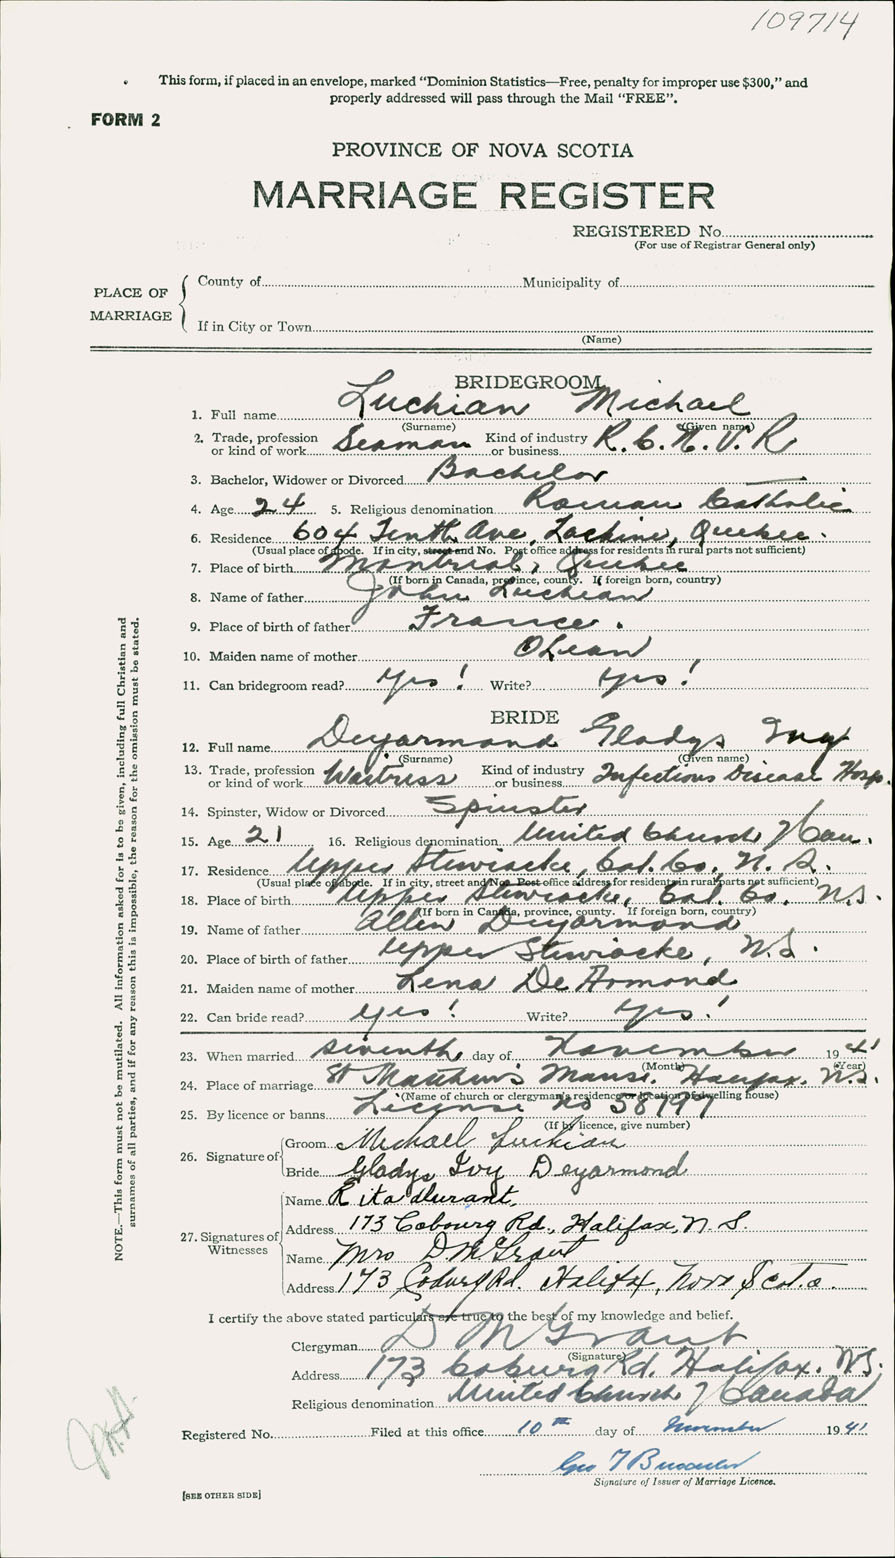 109714
This form, if placed in an envelope, marked “Dominion Statistics—Free, penalty for improper use $300,” and
properly addressed will pass through the Mail “FREE”.
FORM 2
PROVINCE OF NOVA SCOTIA
MARRIAGE REGISTER
REGISTERED No.
(For use of Registrar General only)
PLACE OF MARRIAGE
County of Municipality of
If in City or Town
(Name)
BRIDEGROOM
1. Full name Luchian Michael
(Surname) (Given name)
2. Trade, profession or kind of work Seaman Kind of industry or business R.C.N.V.R
3. Bachelor, Widower or Divorced Bachelor
4. Age 24 5. Religious denomination Roman Catholic
6. Residence 604 Tenth Ave, Lachine, Quebec.
(Usual place of abode. If in city, street and No. Post office address for residents in rural parts not sufficient)
7. Place of birth Montreal, Quebec
(If born in Canada, province, county. If foreign born, country)
8. Name of father John Luchian
9. Place of birth of father France.
10. Maiden name of mother
11. Can bridegroom read? Yes! Write? Yes!
BRIDE
12. Full name Deyarmond Gladys Ivy
(Surname) (Given name)
13. Trade, profession or kind of work Waitress Kind of industry or business Infectious Disease Hosp.
14. Spinster, Widow or Divorced Spinster
15. Age 21 16. Religious denomination United Church of Can.
17. Residence Upper Stewiacke, Col. Co, N.S.
(Usual place of abode. If in city, street and No. Post office address for residents in rural parts not sufficient)
18. Place of birth Upper Stewiacke, Col. Co. N.S.
(If born in Canada, province, county. If foreign born, country)
19. Name of father Allen Deyarmond
20. Place of birth of father Upper Stewiacke, N.S.
21. Maiden name of mother Lena De Armond
22. Can bride read? Yes! Write? Yes!
23. When married seventh day of November 1941
(Month) (Year)
24. Place of marriage St Matthew's Manse. Halifax. N.S.
(Name of church or clergyman's residence or location of dwelling house)
25. By licence or banns License No 58797
(If by licence, give number)
26. Signature of
Groom Michael Luchian
Bride Gladys Ivy Deyarmond
27. Signatures of Witnesses
Name Rita Durant,
Address 173 Cobourg Rd., Halifax, N.S.
Name Mrs D. M. Grant
Address 173 Coburg Rd. Halifax, Nova Scotia.
I certify the above stated particulars are true to the best of my knowledge and belief.
Clergyman D M Grant
(Signature)
Address 173 Coburg Rd. Halifax. N.S.
Religious denomination United Church of Canada
Registered No. Filed at this office 10th day of November 1941
Geo T
Signature of Issuer of Marriage Licence.
[SEE OTHER SIDE]
NOTE.—This form must not be mutilated. All information asked for is to be given, including full Christian and
surnames of all parties, and if for any reason this is impossible, the reason for the omission must be stated.